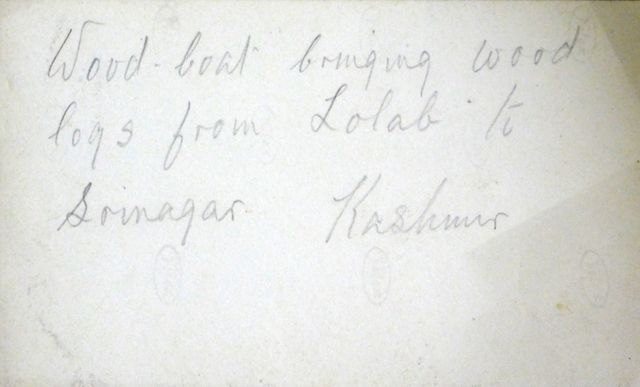 Wood-boat bringing wood
logs from Lolab to
Srinagar. Kashmir